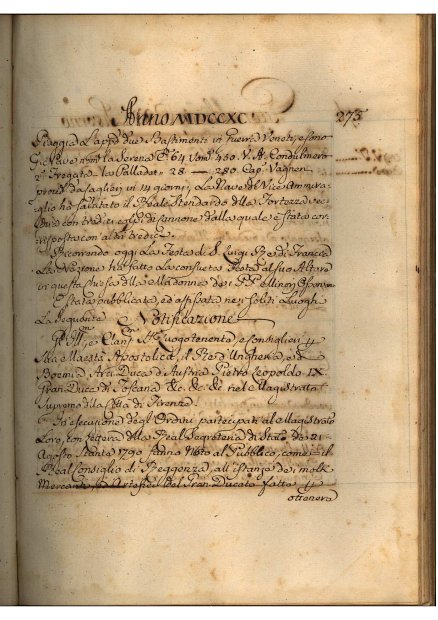 Anno MDCCXC. 275
Piaggia Lapp. due Bastimenti in Guerra Veneti, e sono
Nave nom. la Serena C. 64 Uom. 450 V. A. Condulmero
Fregata la Pallade „ 28 — „ 280 Cap.
prov. da in 14 giorni, La Nave del Vice Ammira-
glio ha salutato il Reale Stendardo della Fortezza Vec-
chia con tredici colpi di cannone dalla quale è stata cor-
risposta con altri tredici.
Ricorrendo oggi La Festa di S. Luigi Re di Francia
La Nazione ha fatto La consueta Festa al suo Altare
in questa Chiesa della Madonna dei PP.
È stata pubblicata, ed affissata nei soliti Luoghi
La seguente Notificazione
Gli Luogotenente, e Consiglieri p
Sua Maestà Apostolica, il Re d'Ungheria, e di
Boemia Arci Duca di Austria Pietro Leopoldo IX.
Gran Duca di Toscana &c. &c. &c. nel Magistrato
Supremo d.la Città di Firenze.
In esecuzione degl'Ordini partecipati al Magistrato
Loro, con Lettera della Real Segreteria di Stato de 21
Agosto stante 1790 fanno Noto al Pubblico, come il
Real Consiglio di Reggenza, all'istanza dei molti
Mercanti, ed Artefici del Gran Ducato fatta p
ottenere